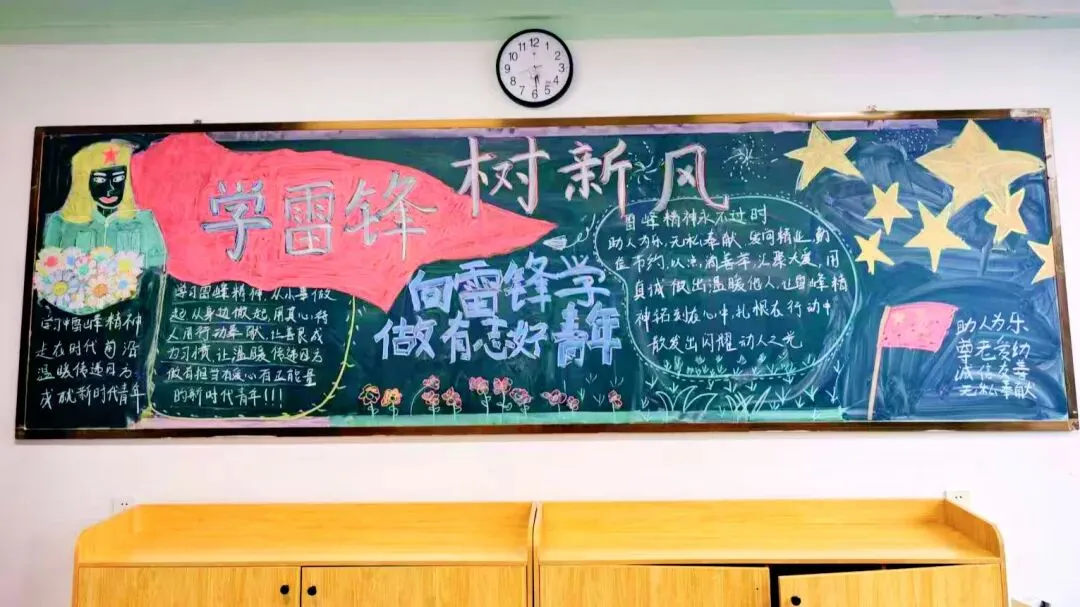 学雷锋
树新风
向雷锋学
做有志好青年
学习雷峰精神，从小事做
起从身边做起，用真心待
人用行动奉献，让善良成
为习惯，让温暖传递四方
做有担当有爱心有正能量
的新时代青年!!!
雷峰精神
走在时代前沿
温暖传递四方
成就新时代青年
雷峰精神永不过时
助人为乐，无私奉献
节约，从点滴善举，汇聚大爱，用
真诚做出温暖他人，让雷峰精
神铭刻在心中，扎根在行动中
散发出闪耀动人之光
助人为乐
尊老爱幼
诚信友善
无私奉献
12
1
2
3
4
5
6
7
8
9
10
11